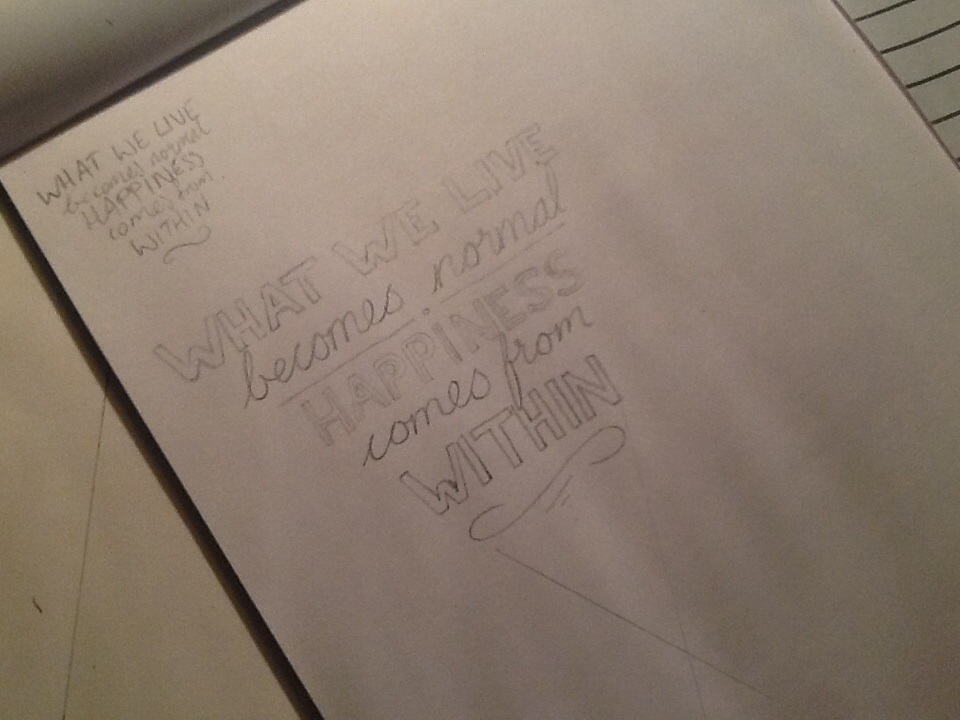 WHAT WE LIVE
becomes normal
HAPPINESS
comes from
WITHIN
WHAT WE LIVE
becomes normal
HAPPINESS
comes from
WITHIN